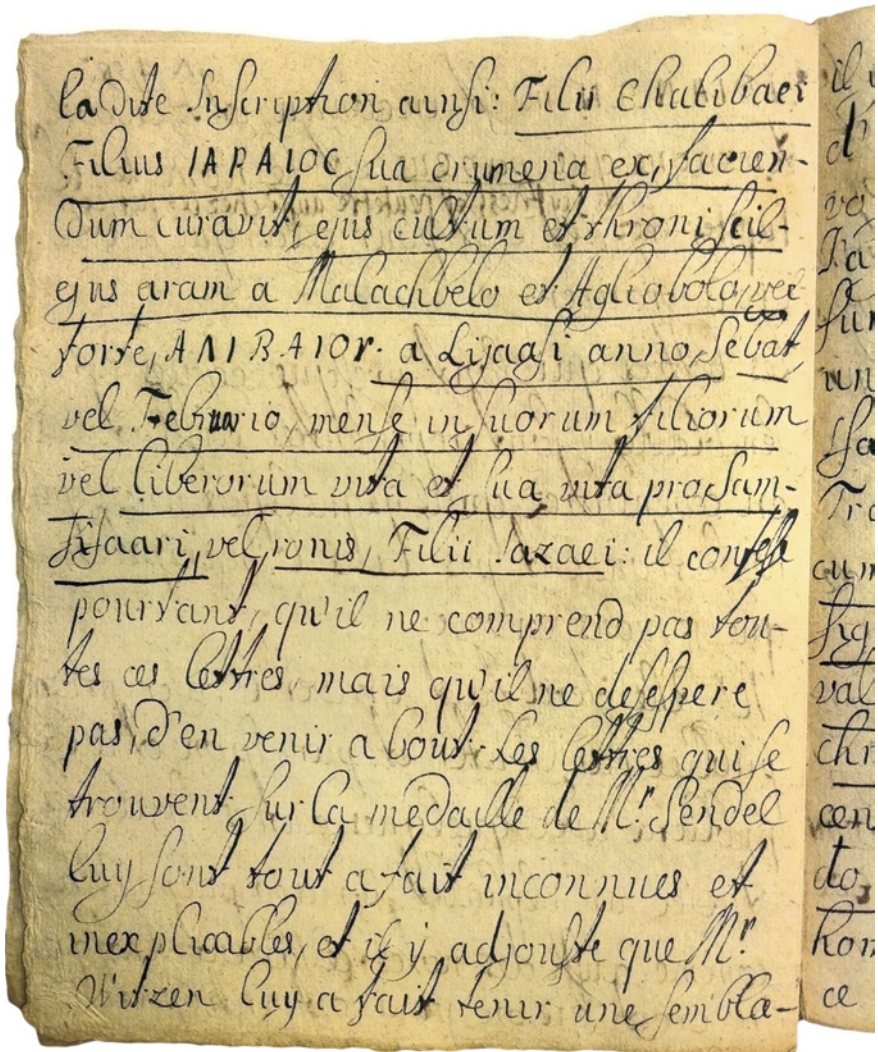 la dite Inscription ainsi: Filii Chalibaei
Filius IAPAIOC sua crumena ex, facien-
dum curavit, ejus cultum et throni scil-
ejus aram a Malachbelo et Agliobolo, vel
forte, ANIBAIOY. a Lisaasi anno, Sebat,
vel Februario, mense in suorum filiorum
vel liberorum vita et sua vita pro Sam-
sisaari, vel, ronis, Filii Sazaei: il confesse
pourtant, qu'il ne comprend pas tou-
tes ces lettres, mais qu'il ne desespere
pas, d'en venir a bout. Les lettres qui se
trouvent sur la medaille de Mr. Sendel
luy sont tout a fait inconnues et
inexplicables, et il y adjouste que Mr.
Witzen luy a fait tenir une sembla-